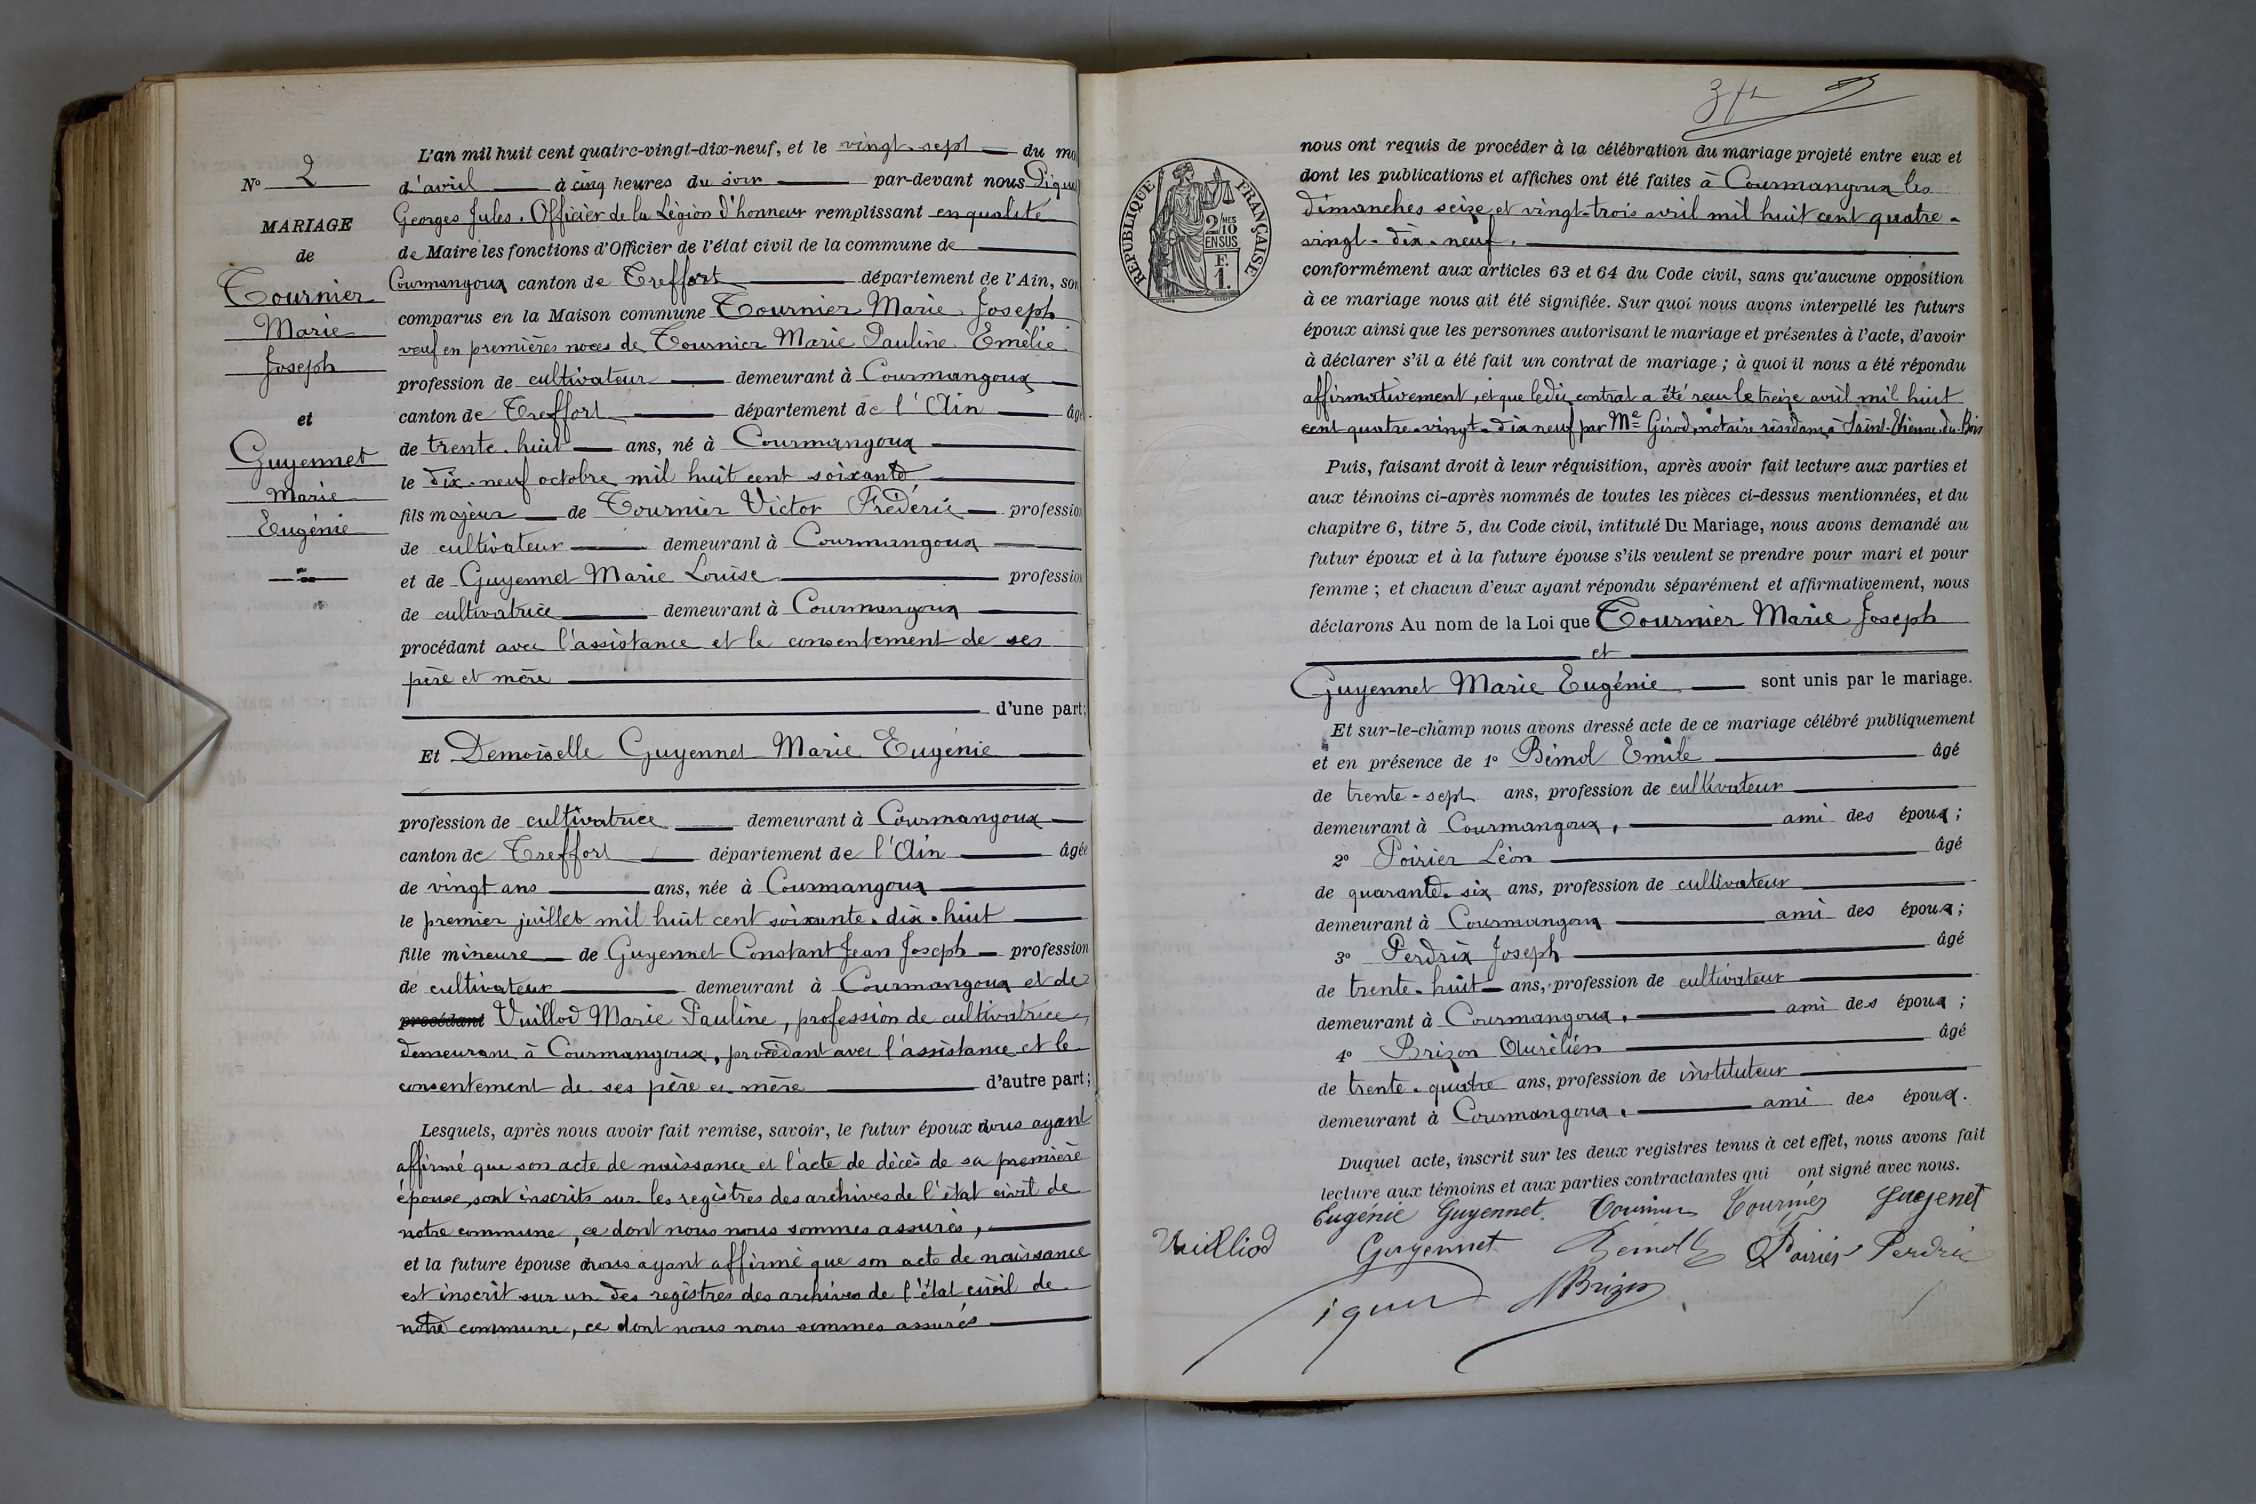 N° 2
MARIAGE
de
Tournier
Marie
Joseph
et
Guyennet
Marie
Eugénie
L'an mil huit cent quatre-vingt-dix-neuf, et le vingt-sept du mo
d'avril à cinq heures du soir par-devant nous
Georges Jules. Officier de la Légion d'honneur remplissant en qualité
de Maire les fonctions d'Officier de l'état civil de la commune de
Courmangoux canton de Treffort département de l'Ain, son
comparus en la Maison commune Tournier Marie Joseph
veuf en premières noces de Tournier Marie Pauline Emélie
profession de cultivateur demeurant à Courmangoux
canton de Treffort département de l'Ain âgé
de trente-huit ans, né à Courmangoux
le dix-neuf octobre mil huit cent soixante
fils majeur de Tournier Victor Frédéric profession
de cultivateur demeurant à Courmangoux
et de Guyennet Marie Louise profession
de cultivatrice demeurant à Courmangoux
procédant avec l'assistance et le consentement de ses
père et mère
d'une part;
Et Demoiselle Guyennet Marie Eugénie
profession de cultivatrice demeurant à Courmangoux
canton de Treffort département de l'Ain âgée
de vingt ans ans, née à Courmangoux
le premier juillet mil huit cent soixante-dix-huit
fille mineure de Guyennet Constant Jean Joseph profession
de cultivateur demeurant à Courmangoux et de
procédant Vuillod Marie Pauline, profession de cultivatrice,
demeurant à Courmangoux, procédant avec l'assistance et le
consentement de ses père et mère d'autre part;
Lesquels, après nous avoir fait remise, savoir, le futur époux nous ayant
affirmé que son acte de naissance et l'acte de décès de sa première
épouse, sont inscrits sur les registres des archives de l'état civil de
notre commune, ce dont nous nous sommes assurés,
et la future épouse nous ayant affirmé que son acte de naissance
est inscrit sur un des registres des archives de l'état civil de
notre commune, ce dont nous nous sommes assurés
REPUBLIQUE FRANÇAISE
2/10
MES
EN SUS
F.
1.
nous ont requis de procéder à la célébration du mariage projeté entre eux et
dont les publications et affiches ont été faites à Courmangoux les
dimanches seize et vingt-trois avril mil huit cent quatre-
vingt-dix-neuf.
conformément aux articles 63 et 64 du Code civil, sans qu'aucune opposition
à ce mariage nous ait été signifiée. Sur quoi nous avons interpellé les futurs
époux ainsi que les personnes autorisant le mariage et présentes à l'acte, d'avoir
à déclarer s'il a été fait un contrat de mariage; à quoi il nous a été répondu
affirmativement, et que ledit contrat a été reçu le treize avril mil huit
cent quatre-vingt-dix neuf par Me Girod, notaire résidant à Saint-Etienne-du-Bois
Puis, faisant droit à leur réquisition, après avoir fait lecture aux parties et
aux témoins ci-après nommés de toutes les pièces ci-dessus mentionnées, et du
chapitre 6, titre 5, du Code civil, intitulé Du Mariage, nous avons demandé au
futur époux et à la future épouse s'ils veulent se prendre pour mari et pour
femme; et chacun d'eux ayant répondu séparément et affirmativement, nous
déclarons Au nom de la Loi que Tournier Marie Joseph
et
Guyennet Marie Eugénie sont unis par le mariage.
Et sur-le-champ nous avons dressé acte de ce mariage célébré publiquement
et en présence de 1° Bémol Emile âgé
de trente-sept ans, profession de cultivateur
demeurant à Courmangoux, ami des époux;
2° Poirier Léon âgé
de quarante-six ans, profession de cultivateur
demeurant à Courmangoux ami des époux;
3° Perdrix Joseph âgé
de trente-huit ans, profession de cultivateur
demeurant à Courmangoux, ami des époux;
4° Brizon Aurélien âgé
de trente-quatre ans, profession de instituteur
demeurant à Courmangoux, ami des époux.
Duquel acte, inscrit sur les deux registres tenus à cet effet, nous avons fait
lecture aux témoins et aux parties contractantes qui ont signé avec nous.
Eugénie Guyennet. Tournier Tournier Guyenet
Vuilliod Guyennet Bémol Poirier Perdrix
Brizon